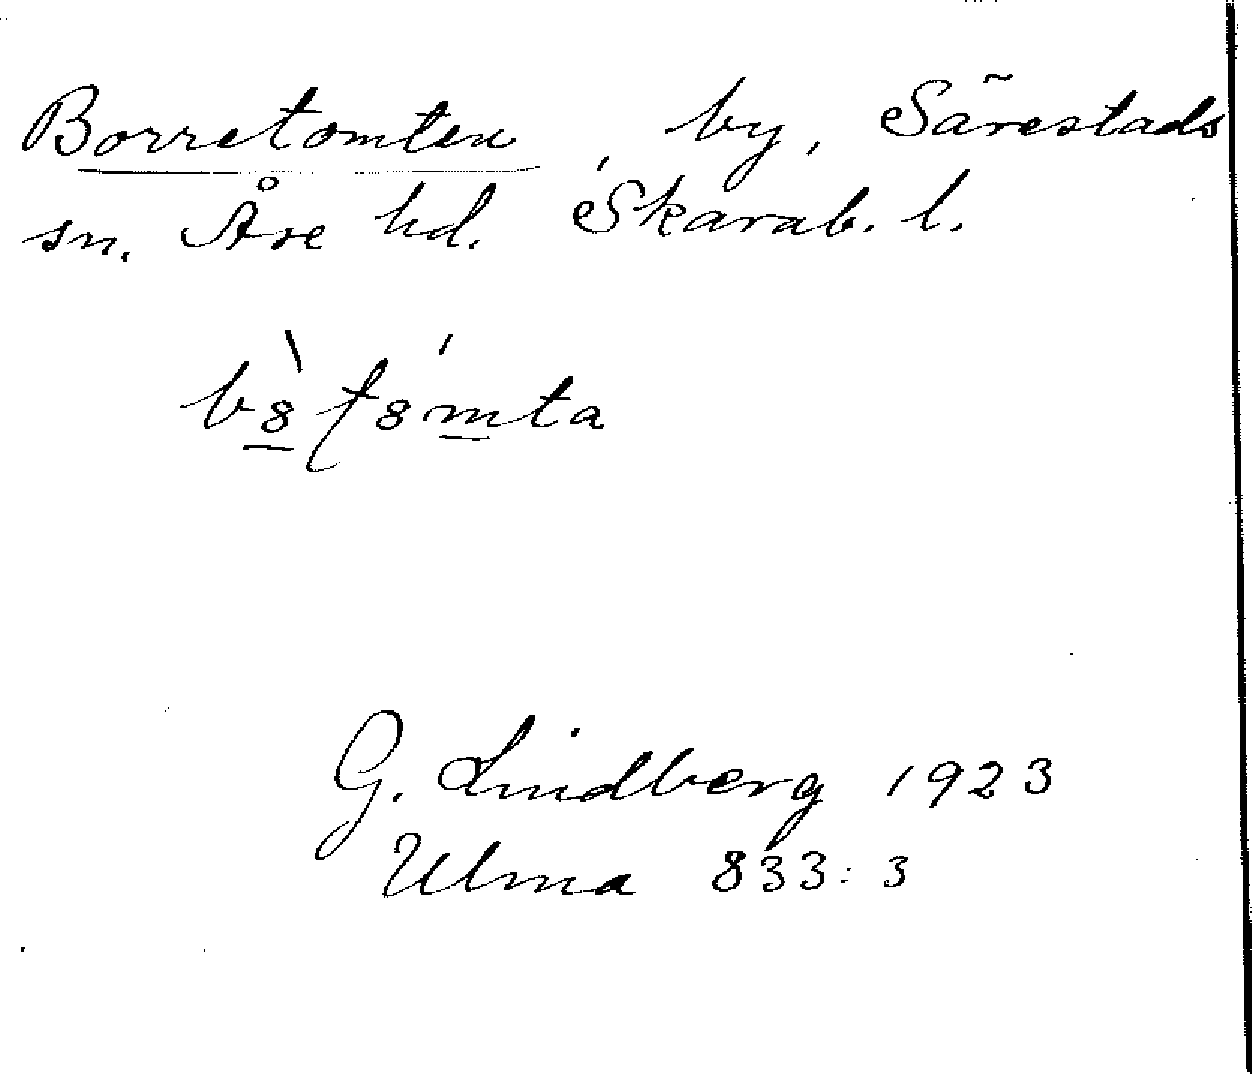 Borretomten, by, Särestads
sn. Åre hd. Skarab. l.
G. Lindberg 1923
Ulma 833:3